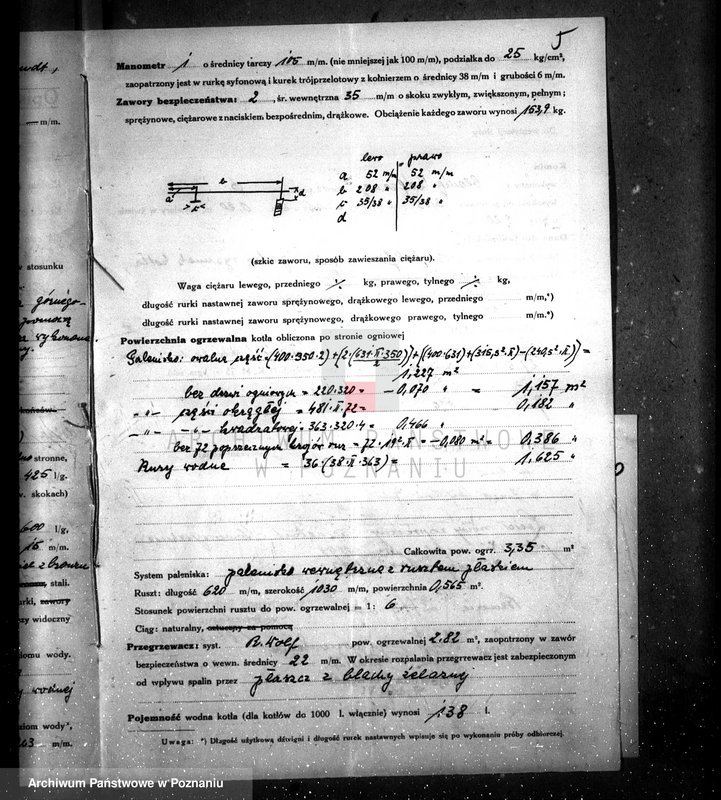 5
Manometr 1 o średnicy tarczy 105 m/m. (nie mniejszej jak 100 m/m), podziałka do 25 kg/cm²,
zaopatrzony jest w rurkę syfonową i kurek trójprzelotowy z kołnierzem o średnicy 38 m/m i grubości 6 m/m.
Zawory bezpieczeństwa: 2, śr. wewnętrzna 35 m/m o skoku zwykłym, zwiększonym, pełnym;
sprężynowe, ciężarowe z naciskiem bezpośrednim, drążkowe. Obciążenie każdego zaworu wynosi 153,9 kg.
lewo prawo
a 52 m/m 52 m/m
b 208 " 208 "
c 35/38 " 35/38 "
d
b
a
d
c
(szkic zaworu, sposób zawieszania ciężaru).
Waga ciężaru lewego, przedniego kg, prawego, tylnego kg,
długość rurki nastawnej zaworu sprężynowego, drążkowego lewego, przedniego m/m,*)
długość rurki nastawnej zaworu sprężynowego, drążkowego, prawego, tylnego m/m.*)
Powierzchnia ogrzewalna kotła obliczona po stronie ogniowej
Palenisko: owalna część = (400·950·2) + (2·(631·π·350)/2) + ((400·631) + (315,5²·π) − (240,5²·π)) =
1,227 m²
bez drzwi ogniowych = 220·320 = − 0,070 " = 1,157 m²
- " - części okrągłej = 481·π·72 = 0,182 "
- " - - " - kwadratowej = 363·320·4 = 0,466 "
bez 72 poprzecznym rur = 72·19²·π = −0,080 m² = 0,386 "
Rury wodne = 36·(38·π·363) = 1,625 "
Całkowita pow. ogrz. 3,35 m²
System paleniska: palenisko wewnętrzne z rusztem płaskiem
Ruszt: długość 620 m/m, szerokość 1030 m/m, powierzchnia 0,565 m².
Stosunek powierzchni rusztu do pow. ogrzewalnej = 1: 6
Ciąg: naturalny, sztuczny za pomocą
Przegrzewacz: syst. R. Wolf pow. ogrzewalnej 2.82 m², zaopotrzony w zawór
bezpieczeństwa o wewn. średnicy 22 m/m. W okresie rozpalania przegrrewacz jest zabezpieczonym
od wpływu spalin przez płaszcz z blachy żelaznej
Pojemność wodna kotła (dla kotłów do 1000 l. włącznie) wynosi 138 l.
Uwaga: *) Długość użytkową dźwigni i długość rurek nastawnych wpisuje się po wykonaniu próby odbiorczej.
m/m.
stosunku
stronne,
425 l/g.
skokach)
600 l/g,
15 m/m.
stali.
zawory
widoczny
wody.
wodnej
wody",
163 m/m.
ARCHIWUM PAŃSTWOWE
W POZNANIU
Archiwum Państwowe w Poznaniu